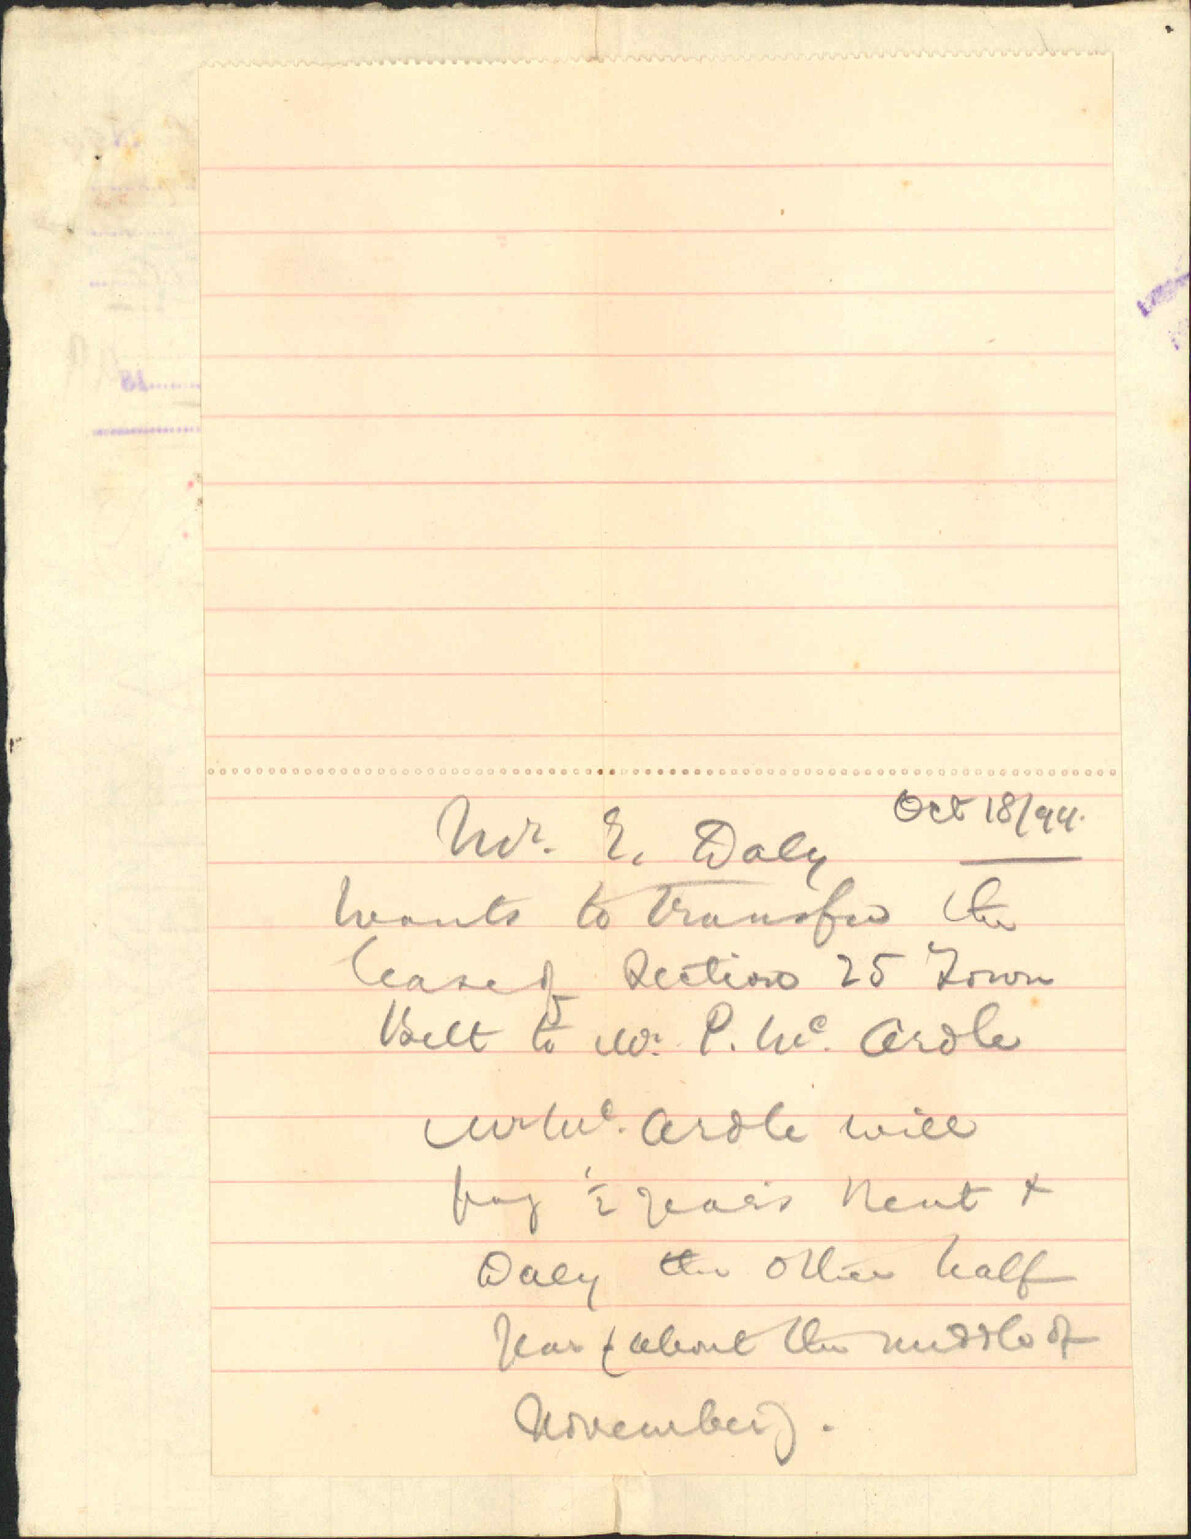 Oct 18/94.
Mr. E. Daly
wants to transfer the
lease of Section 25 Town
Belt to Mr. P. Mc. Ardle
Mr Mc. Ardle will
pay 1/2 year's Rent +
Daly the other half
year (about the middle of
November).